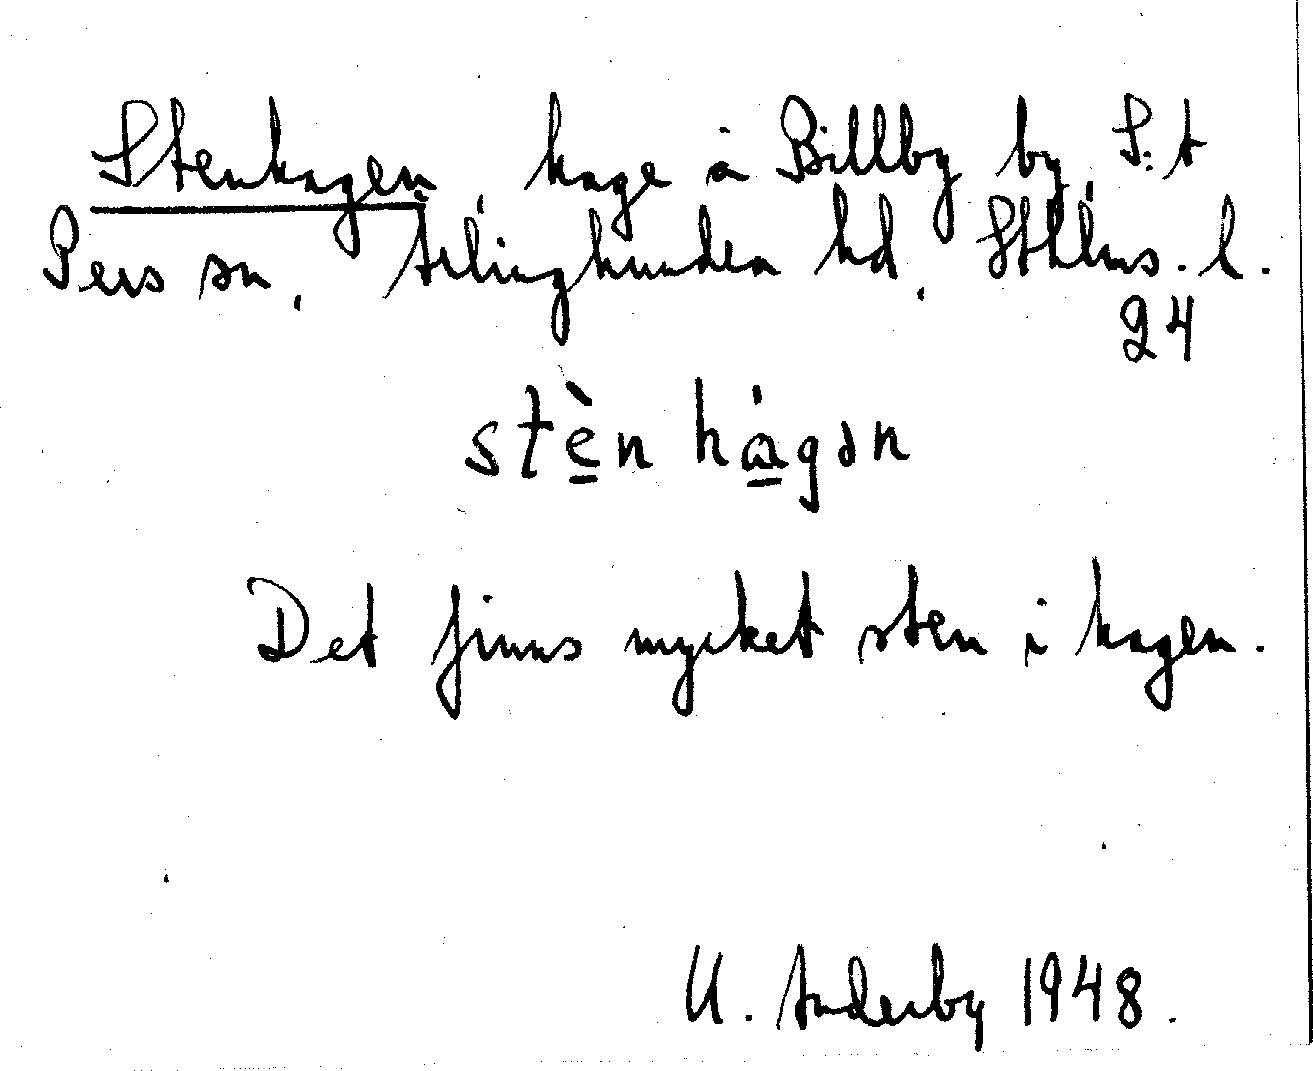 Stenhagen, hage å Billby by, S:t
Pers sn, Ärlinghundra hd, Sthlms. l.
24
stè̱n hȧ̱gən
Det finns mycket sten i hagen.
U. Anderby 1948.